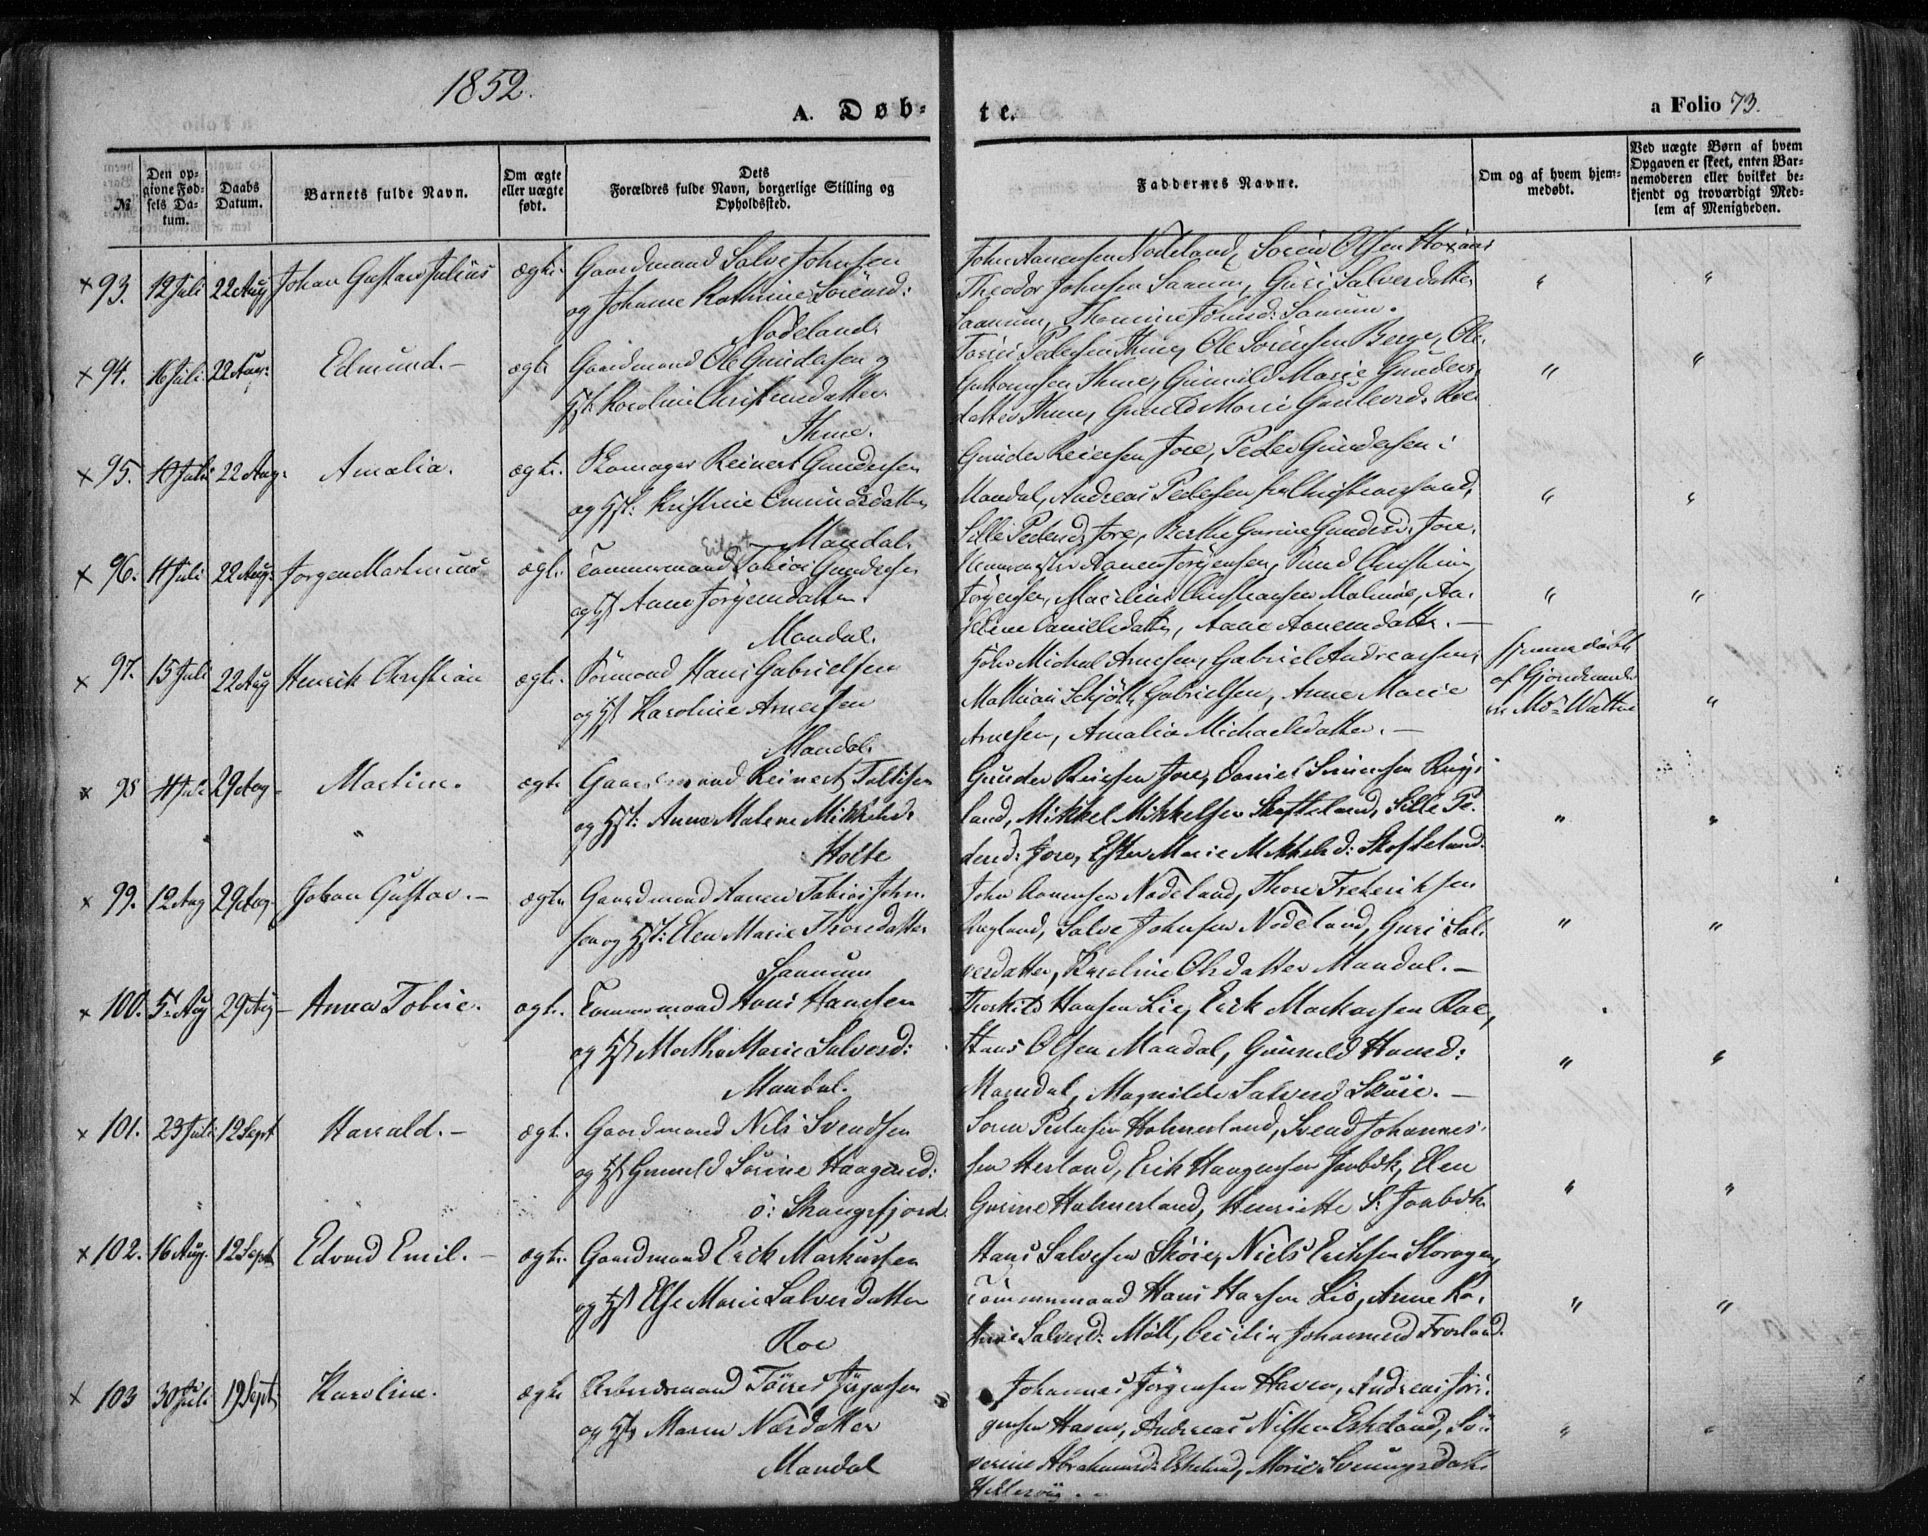 1852.
A. Døb-
te.
a Folio 73.
№
Den op-
givne Fød-
sels Da-
tum.
Daabs
Datum.
Barnets fulde Navn.
Om ægte
eller uægte
født.
Dets
Forældres fulde Navn, borgerlige Stilling og
Opholdssted.
Faddernes Navne.
Om og af hvem hjem-
medøbt.
Ved uægte Børn af hvem
Opgaven er skeet, enten Bar-
nemoderen eller hvilket be-
kjendt og troværdigt Med-
lem af Menigheden.
× 93. 12 Juli 22 Aug Johan Gustav Julius ægte. Gaardmand Salve Johnsen
og Johanne Kathrine Sørensd:
Nodeland.
John Aanensen Nodeland, Søren Olsen
Theodor Johnsen Saanum, Guri Salvesdatter
Saanum,
× 94. 16 Juli 22 Aug: Edmund. – ægte Gaardmand Ole Gundersen og
Hst. Karoline Christensdatter
Ihme.
Pedersen Ihme, Ole Sørensen Berge, Ole
Ihme, Gunnild Marie Gunders-
datter Ihme, Gunild Marie Roe
× 95. 11 Juli 22 Aug. Amalia. ægte. Skomager Reinert Gundersen
og Hst: Kristine Emundsdatter
Mandal.
Gunder Reiersen Jore, Peder Gundersen i
Mandal, Andreas Pedersen fra Christiansand,
Sille Pedersd. Jore, Berthe Gurine Gundersd. Jore.
× 96. 11 Juli 22 Aug. Jørgen Martinius ægte. Tømmermand Tobias Gundersen
og Hst Anne Jørgensdatter.
Mandal.
Aanen Jørgensen,
Jørgensen, Christiansen Malmøe,
Danielsdatter, Anne Aanensdatter. –
× 97. 15 Juli 22 Aug Henrik Christian ægte. Sømand Hans Gabrielsen
og Hst Karoline Arnesen
Mandal.
Michal Arnesen, Gabriel Andreassen,
Mathias Schjøth Gabrielsen, Anne Marie
Arnesen, Amalia Michaelsdatter. –
hjemmedøbt
af Gjordemode-
ren Md:
× 98 29 Aug Martin. ægte Gaardmand Reinert Tollisen
og Hst: Anne Malene Mikkelsd.
Holte
Gunder Reiersen Jore, Daniel
land, Mikkel Mikkelsen Skofteland, Sille Pe-
dersd: Jore, Ester Marie Mikkelsd: Skofteland.
× 99. 12 Aug 29 Aug Johan Gustav. – ægte Gaardmand Aanen Tobias John-
sen og Hst: Elen Marie Thoresdatter
Saanum
John Aanensen Nodeland, Thore Frederiksen
Salve Johnsen Nodeland, Guri Sal-
vesdatter, Karoline Olsdatter Mandal. –
× 100. 5 Aug 29 Aug – Anna Tobine. ægte. Tømmermand Hans Hansen
og Hst Martha Marie Salvesd:
Mandal.
Thorkild Hansen Lie, Erik Markussen Roe,
Hans Olsen Mandal, Gunnild Hansd:
Mandal, Magnilde Salvesd Skøie. –
× 101. 23 Juli 12 Sept Harald. – ægte. Gaardmand Nils Svendsen
og Hst Gunnild Sørine Haagensd:
ø: Skangsfjord.
Søren Pedersen Holmerland, Svend Johannes-
sen Herland, Erik Haagensen Jaabæk, Elen
Gurine Holmerland, Henriette S. Jaabæk
× 102. 16 Aug. 12 Sept Edvard Emil. – ægte. Gaardmand Erik Markussen
og Hst Else Marie Salvesdatter
Roe
Hans Salvesen Skøie, Niels Eriksen
Tømmermand Hans Hansen Lie, Anne
Salvesd: Møll, Cecilia Johannesd Frøsland.
× 103 30 Juli 19 Sept. Karoline. ægte Arbeidsmand Tørres Jørgensen
og Hst: Maren
Mandal
Johannes Jørgensen Haven, Andreas Jør-
gensen Haven, Andreas Nilsen Eskeland,
Abrahamsd: Eskeland, Marie